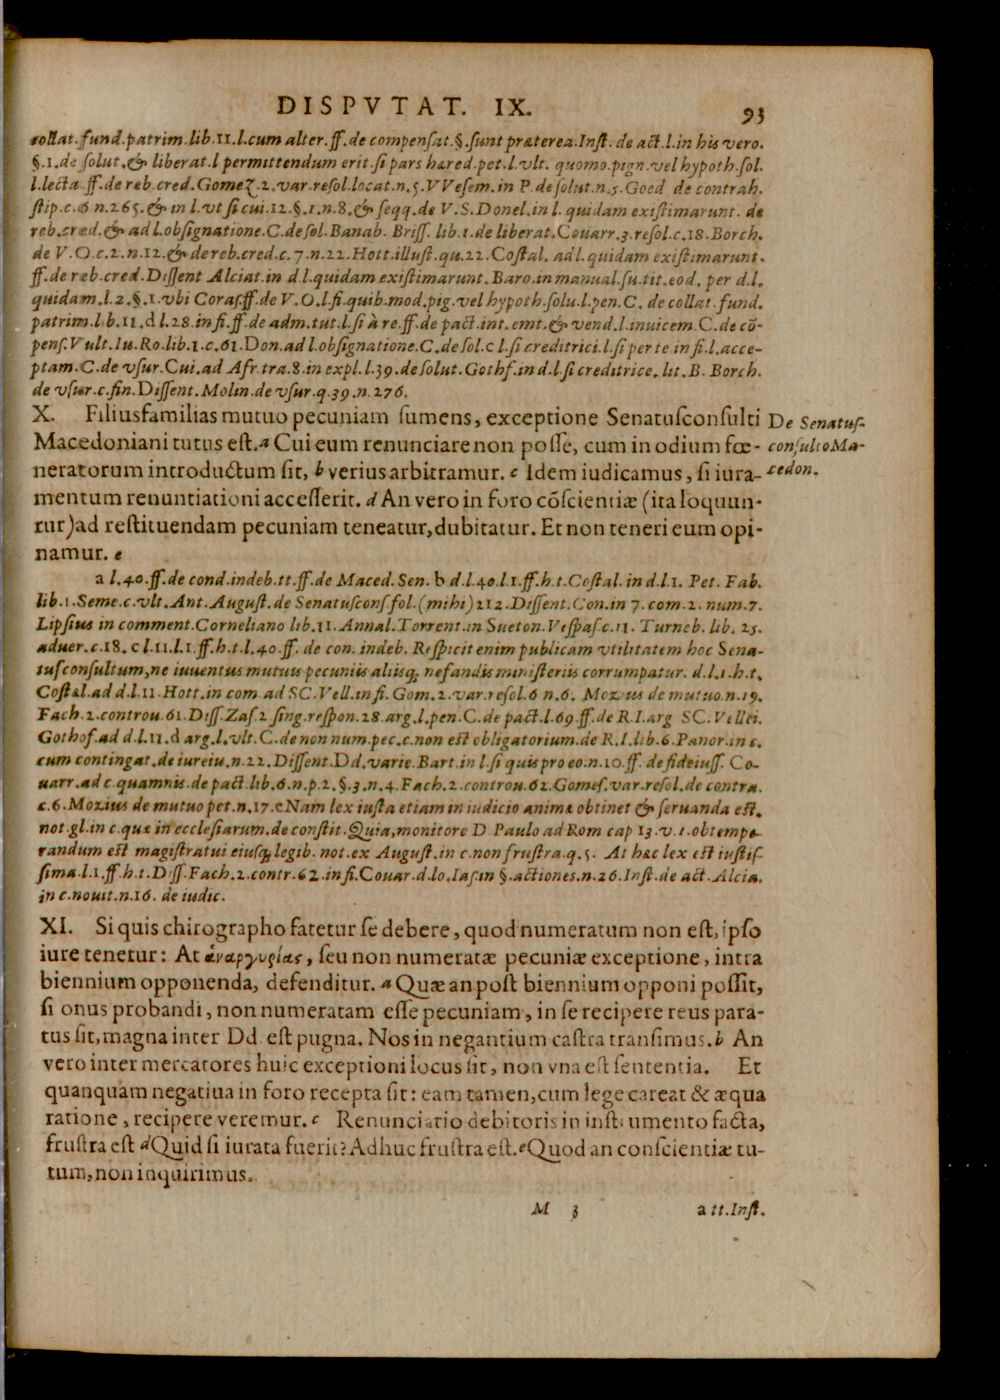 DISPVTAT. IX. 93
collat.fund.patrim.lib.11.l.cum alter.ff.de compenſat.§.ſunt præterea.Inſt. de act.l.in his vero.
§.1.de ſolut.& liberat.l permittendum erit.ſi pars hæred.pet.l.vlt. quomo.pign.vel hypoth.ſol.
l.lecta ff.de reb.cred.Gomez.2.var.reſol.locat.n.5.VVeſem.in P.de ſolut.n.5.Goed de contrah.
ſtip.c.6 n.265.& in l.vt ſi cui.12.§.1.n.8.& ſeqq.de V.S.Donel.in l. quidam exiſtimarunt. de
reb.cred.& ad l.obſignatione.C.de ſol.Banab. Briſſ. lib.1.de liberat.Couarr.3.reſol.c.18.Borch.
de V.O.c.2.n.12.& de reb.cred.c.7.n.22.Hott.illuſt.qu.22.Coſtal. ad l.quidam exiſtimarunt.
ff.de reb.cred.Diſſent Alciat.in d l.quidam exiſtimarunt.Baro.in manual.ſu.tit.eod. per d.l.
quidam.l.2.§.1.vbi Coraſ.ff.de V.O.l.ſi.quib.mod.pig.vel hypoth.ſolu.l.pen.C. de collat.fund.
patrim.l.b.11.d l.28.in fi.ff.de adm.tut.l.ſi à re.ff.de pact.int.emt.& vend.l.inuicem.C.de cō-
penſ.Vult.Iu.Ro.lib.1.c.61.Don.ad l.obſignatione.C.de ſol.c l.ſi creditrici.l.ſi per te in fi.l.acce-
ptam.C.de vſur.Cui.ad Afr.tra.8.in expl.l.39.de ſolut.Gothf.in d.l.ſi creditrice.lit.B. Borch.
de vſur.c.fin.Diſſent.Molin.de vſur.q.39.n.276.
X. Filiusfamilias mutuo pecuniam ſumens, exceptione Senatuſconſulti
Macedoniani tutus eſt.a Cui eum renunciare non poſſe, cum in odium fœ-
neratorum introductum ſit, b verius arbitramur. c Idem iudicamus, ſi iura-
mentum renuntiationi acceſſerit. d An vero in foro cōſcientiæ (ita loquun-
tur)ad reſtituendam pecuniam teneatur,dubitatur. Et non teneri eum opi-
namur. e
De Senatuſ-
conſulto Ma-
cedon.
a l.40.ff.de cond.indeb.tt.ff.de Maced.Sen. b d.l.40.l.1.ff.h.t.Coſtal. in d.l.1. Pet. Fab.
lib.1.Seme.c.vlt.Ant.Auguſt.de Senatuſconſ.fol.(mihi)212.Diſſent.Con.in 7.com.2. num.7.
Lipſius in comment.Corneliano lib.11.Annal.Torrent.in Sueton.Veſpaſ.c.11. Turneb. lib. 25.
aduer.c.18. c l.11.l.1.ff.h.t.l.40.ff. de con. indeb. Reſpicit enim publicam vtilitatem hoc Sena-
tuſconſultum,ne iuuentus mutuis pecuniis aliisq; nefandis miniſteriis corrumpatur. d.l.1.h.t.
Coſtal.ad d.l.11.Hott.in com ad SC.Vell.in fi.Gom.2.var.reſol.6 n.6. Mozius de mutuo.n.19.
Fach.2.controu.61.Diſſ.Zaſ.2 ſing.reſpon.28.arg.l.pen.C.de pact.l.69 ff.de R.I.arg SC.Vellei.
Gothof.ad d.l.11.d arg.l.vlt.C.de non num.pec.c.non eſt obligatorium.de R.I.lib.6.Panor.in c.
cum contingat.de iureiu.n.22.Diſſent.Dd.varie.Bart.in l.ſi quis pro eo.n.10.ff. de fideiuſſ. Co-
uarr.ad c quamuis.de pact.lib.6.n.p.2.§.3.n.4.Fach.2.controu.62.Gomeſ.var.reſol.de contra.
c.6.Mozius de mutuo pet.n.17.e Nam lex iuſta etiam in iudicio animæ obtinet & ſeruanda eſt.
not.gl.in c.quæ in eccleſiarum.de conſtit.Quia,monitore D Paulo ad Rom cap 13.v.1.obtempe-
randum eſt magiſtratui eiusq; legib. not.ex Auguſt.in c.non fruſtra.q.5. At hæc lex eſt iuſtiſ-
ſima.l.1.ff.h.t.Diſſ.Fach.2.contr.62.in fi.Couar.d.lo.Iaſ.in §.actiones.n.26.Inſt.de act.Alcia.
in c.nouit.n.16. de iudic.
XI. Si quis chirographo fatetur ſe debere, quod numeratum non eſt, ipſo
iure tenetur: At ἀναργυρίας, ſeu non numeratæ pecuniæ exceptione, intra
biennium opponenda, defenditur. a Quæ an poſt biennium opponi poſſit,
ſi onus probandi, non numeratam eſſe pecuniam, in ſe recipere reus para-
tus ſit, magna inter Dd eſt pugna. Nos in negantium caſtra tranſimus.b An
vero inter mercatores huic exceptioni locus ſit, non vna eſt ſententia. Et
quanquam negatiua in foro recepta ſit: eam tamen,cum lege careat & æqua
ratione, recipere veremur. c Renunciatio debitoris in inſtrumento facta,
fruſtra eſt d Quid ſi iurata fuerit? Adhuc fruſtra eſt.e Quod an conſcientiæ tu-
tum,non inquirimus.
M 3 a tt.Inſt.